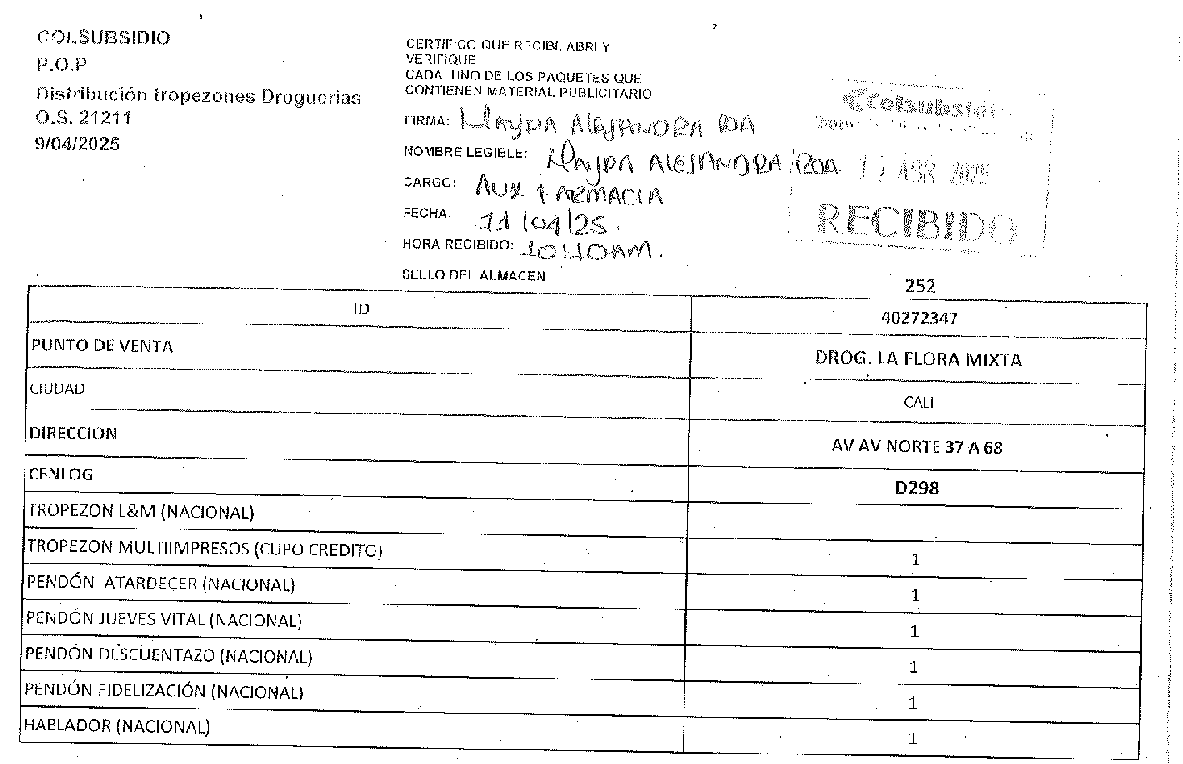 COLSUBSIDIO
P.O.P
Distribución tropezones Droguerias
O.S. 21211
9/04/2025
CERTIFICO QUE RECIBI, ABRI Y
VERIFIQUE
CADA UNO DE LOS PAQUETES QUE
CONTIENEN MATERIAL PUBLICITARIO
FIRMA: Mayra Alejandra Roa
NOMBRE LEGIBLE: Mayra Alejandra Roa
CARGO: Aux Farmacia
FECHA: 11/04/25.
HORA RECIBIDO: 10:10AM.
SELLO DEL ALMACEN
Colsubsidio
ABR 2025
RECIBIDO
252
ID 40272347
PUNTO DE VENTA DROG. LA FLORA MIXTA
CIUDAD CALI
DIRECCION AV AV NORTE 37 A 68
CENLOG D298
TROPEZON L&M (NACIONAL)
TROPEZON MULTIIMPRESOS (CUPO CREDITO) 1
PENDÓN ATARDECER (NACIONAL) 1
PENDÓN JUEVES VITAL (NACIONAL) 1
PENDÓN DESCUENTAZO (NACIONAL) 1
PENDÓN FIDELIZACIÓN (NACIONAL) 1
HABLADOR (NACIONAL) 1